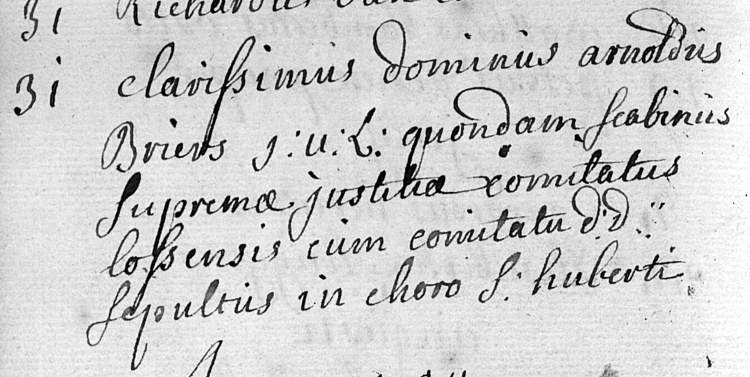 31 Richardus
31 clarissimus dominus arnoldus
Briers j: u: L: quondam scabinus
Supremæ justitiæ comitatus
lossensis cum comitatu d:d:
sepultus in choro S: huberti